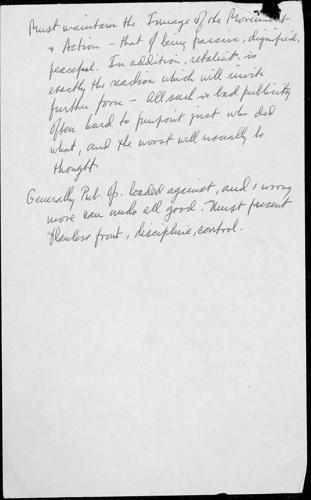 Must maintain the Image of the Movement
+ Action - that of being passive, dignified,
peaceful. In addition, retaliat. is
exactly the reaction which will invite
further force - All such is bad publicity
Often hard to pinpoint just who did
what, and the worst will usually be
thought.
Generally Pub. Op. loaded against, and 1 wrong
move can undo all good. Must present
flawless front, discipline, control.